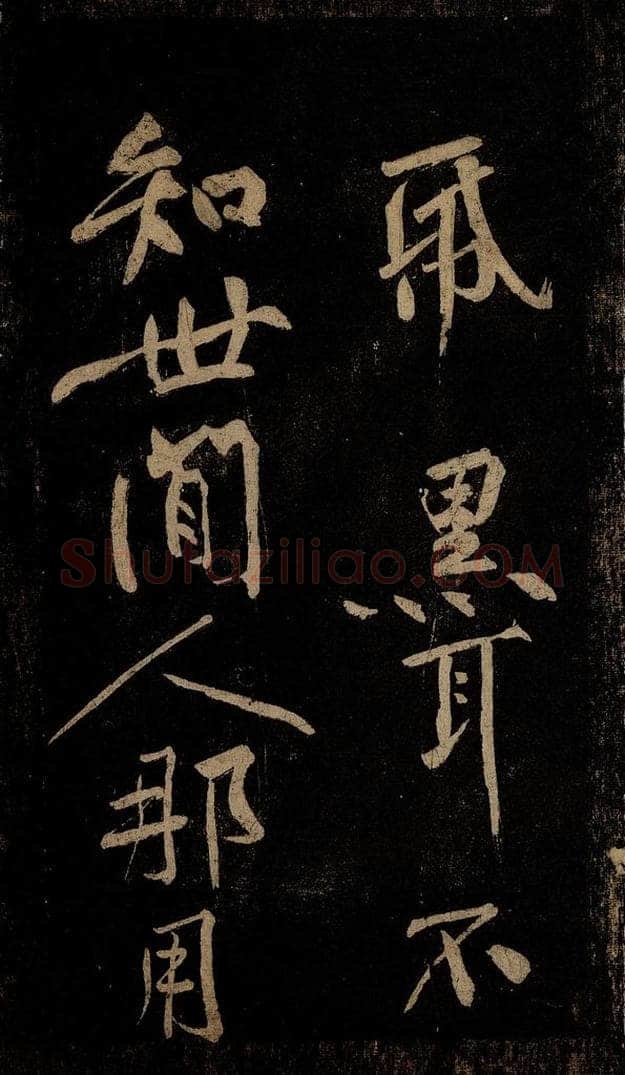 帋黑耳不
知世間人那用
Shufaziliao.COM